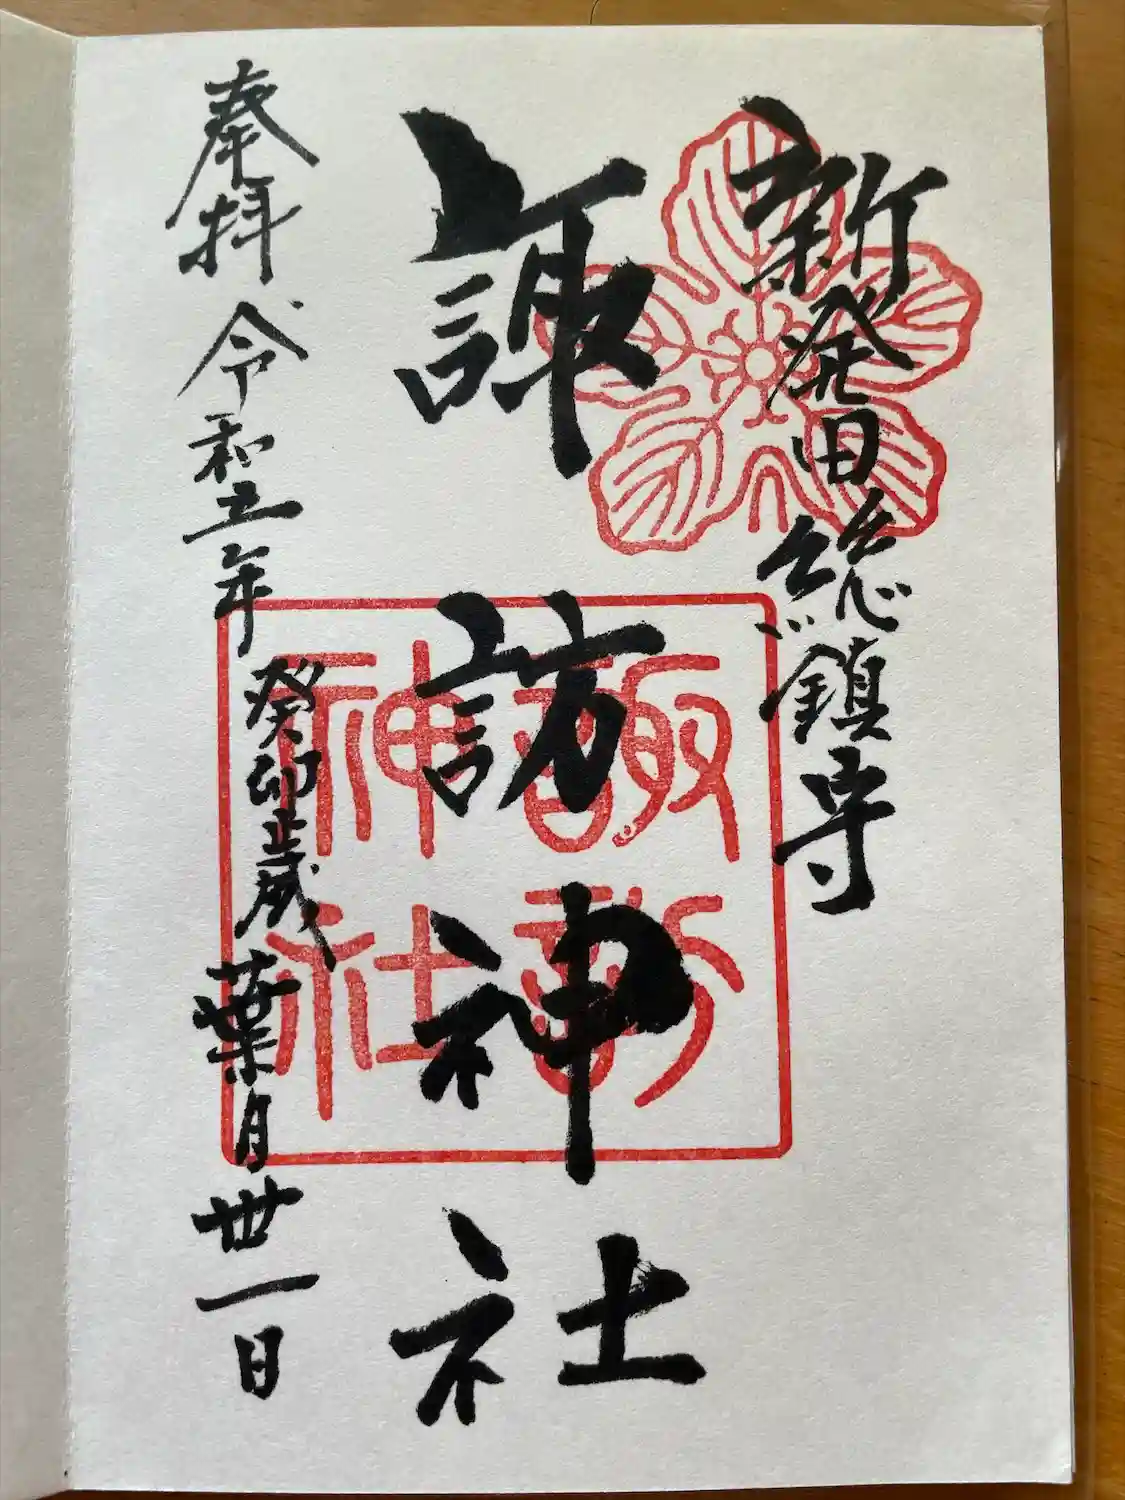 新発田総鎮守
諏訪神社
諏訪
神社
奉拝 令和五年 癸卯歳 葉月 丗一日